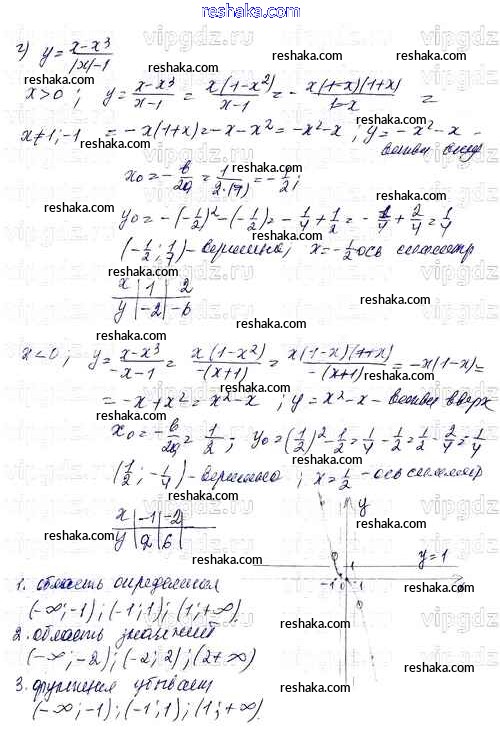 www.reshaka.com
г) y = (x-x³)/(|x|-1)
x>0; y = (x-x³)/(x-1) = x(1-x²)/(x-1) = - x(1-x)(1+x)/(1-x) =
x≠1;-1 = -x(1+x) = -x-x² = -x²-x; y = -x²-x -
ветви вниз
x₀ = -b/2a = 1/(2·(-1)) = -1/2;
y₀ = -(-1/2)² - (-1/2) = -1/4 + 1/2 = -1/4 + 2/4 = 1/4
(-1/2; 1/4) - вершина, x = -1/2 ось симметр
x | 1 | 2
y | -2 | -6
x<0; y = (x-x³)/(-x-1) = x(1-x²)/(-(x+1)) = x(1-x)(1+x)/(-(x+1)) = -x(1-x) =
= -x+x² = x²-x; y = x²-x - ветви вверх
x₀ = -b/2a = 1/2; y₀ = (1/2)² - 1/2 = 1/4 - 1/2 = 1/4 - 2/4 = -1/4
(1/2; -1/4) - вершина; x = 1/2 - ось симметр
x | -1 | -2
y | 2 | 6
y
y=1
-1 0 1
1. область определения
(-∞;-1); (-1;1); (1;+∞).
2. область значений
(-∞;-2); (-2;2); (2+∞)
3. функция убывает
(-∞;-1); (-1;1); (1;+∞).